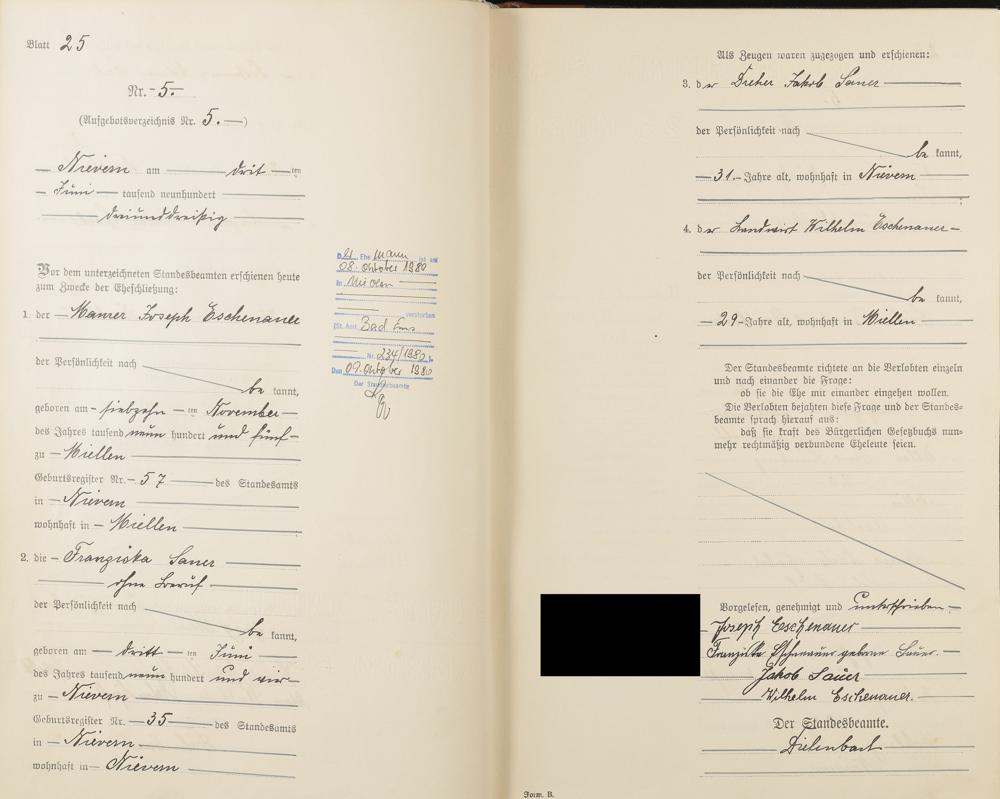 Blatt 25
Nr. 5.
(Aufgebotsverzeichnis Nr. 5.)
Nievern am dritten
Juni tausend neunhundert
dreiunddreißig
Vor dem unterzeichneten Standesbeamten erschienen heute
zum Zwecke der Eheschließung:
1. der Maurer Joseph Eschenauer
der Persönlichkeit nach
be kannt,
geboren am siebzehn ten November
des Jahres tausend neun hundert und fünf
zu Miellen
Geburtsregister Nr. 57 des Standesamts
in Nievern
wohnhaft in Miellen
2. die Franziska Sauer
ohne Beruf
der Persönlichkeit nach
be kannt,
geboren am dritt ten Juni
des Jahres tausend neun hundert und vier
zu Nievern
Geburtsregister Nr. 35 des Standesamts
in Nievern
wohnhaft in Nievern
D. Ehemann ist am
08. Oktober 1980
in Mielen
verstorben
(St. Amt Bad Ems
Nr. 234/1980).
Den 09. Oktober 1980
Der Standesbeamte
Als Zeugen waren zugezogen und erschienen:
3. der Dreher Jakob Sauer
der Persönlichkeit nach
be kannt,
31 Jahre alt, wohnhaft in Nievern
4. der Landwirt Wilhelm Eschenauer
der Persönlichkeit nach
be kannt,
29 Jahre alt, wohnhaft in Miellen
Der Standesbeamte richtete an die Verlobten einzeln
und nach einander die Frage:
ob sie die Ehe mit einander eingehen wollen.
Die Verlobten bejahten diese Frage und der Standes-
beamte sprach hierauf aus:
daß sie kraft des Bürgerlichen Gesetzbuchs nun-
mehr rechtmäßig verbundene Eheleute seien.
Vorgelesen, genehmigt und unterschrieben
Joseph Eschenauer
Franziska Eschenauer geborene Sauer.
Jakob Sauer
Wilhelm Eschenauer.
Der Standesbeamte.
Form. B.